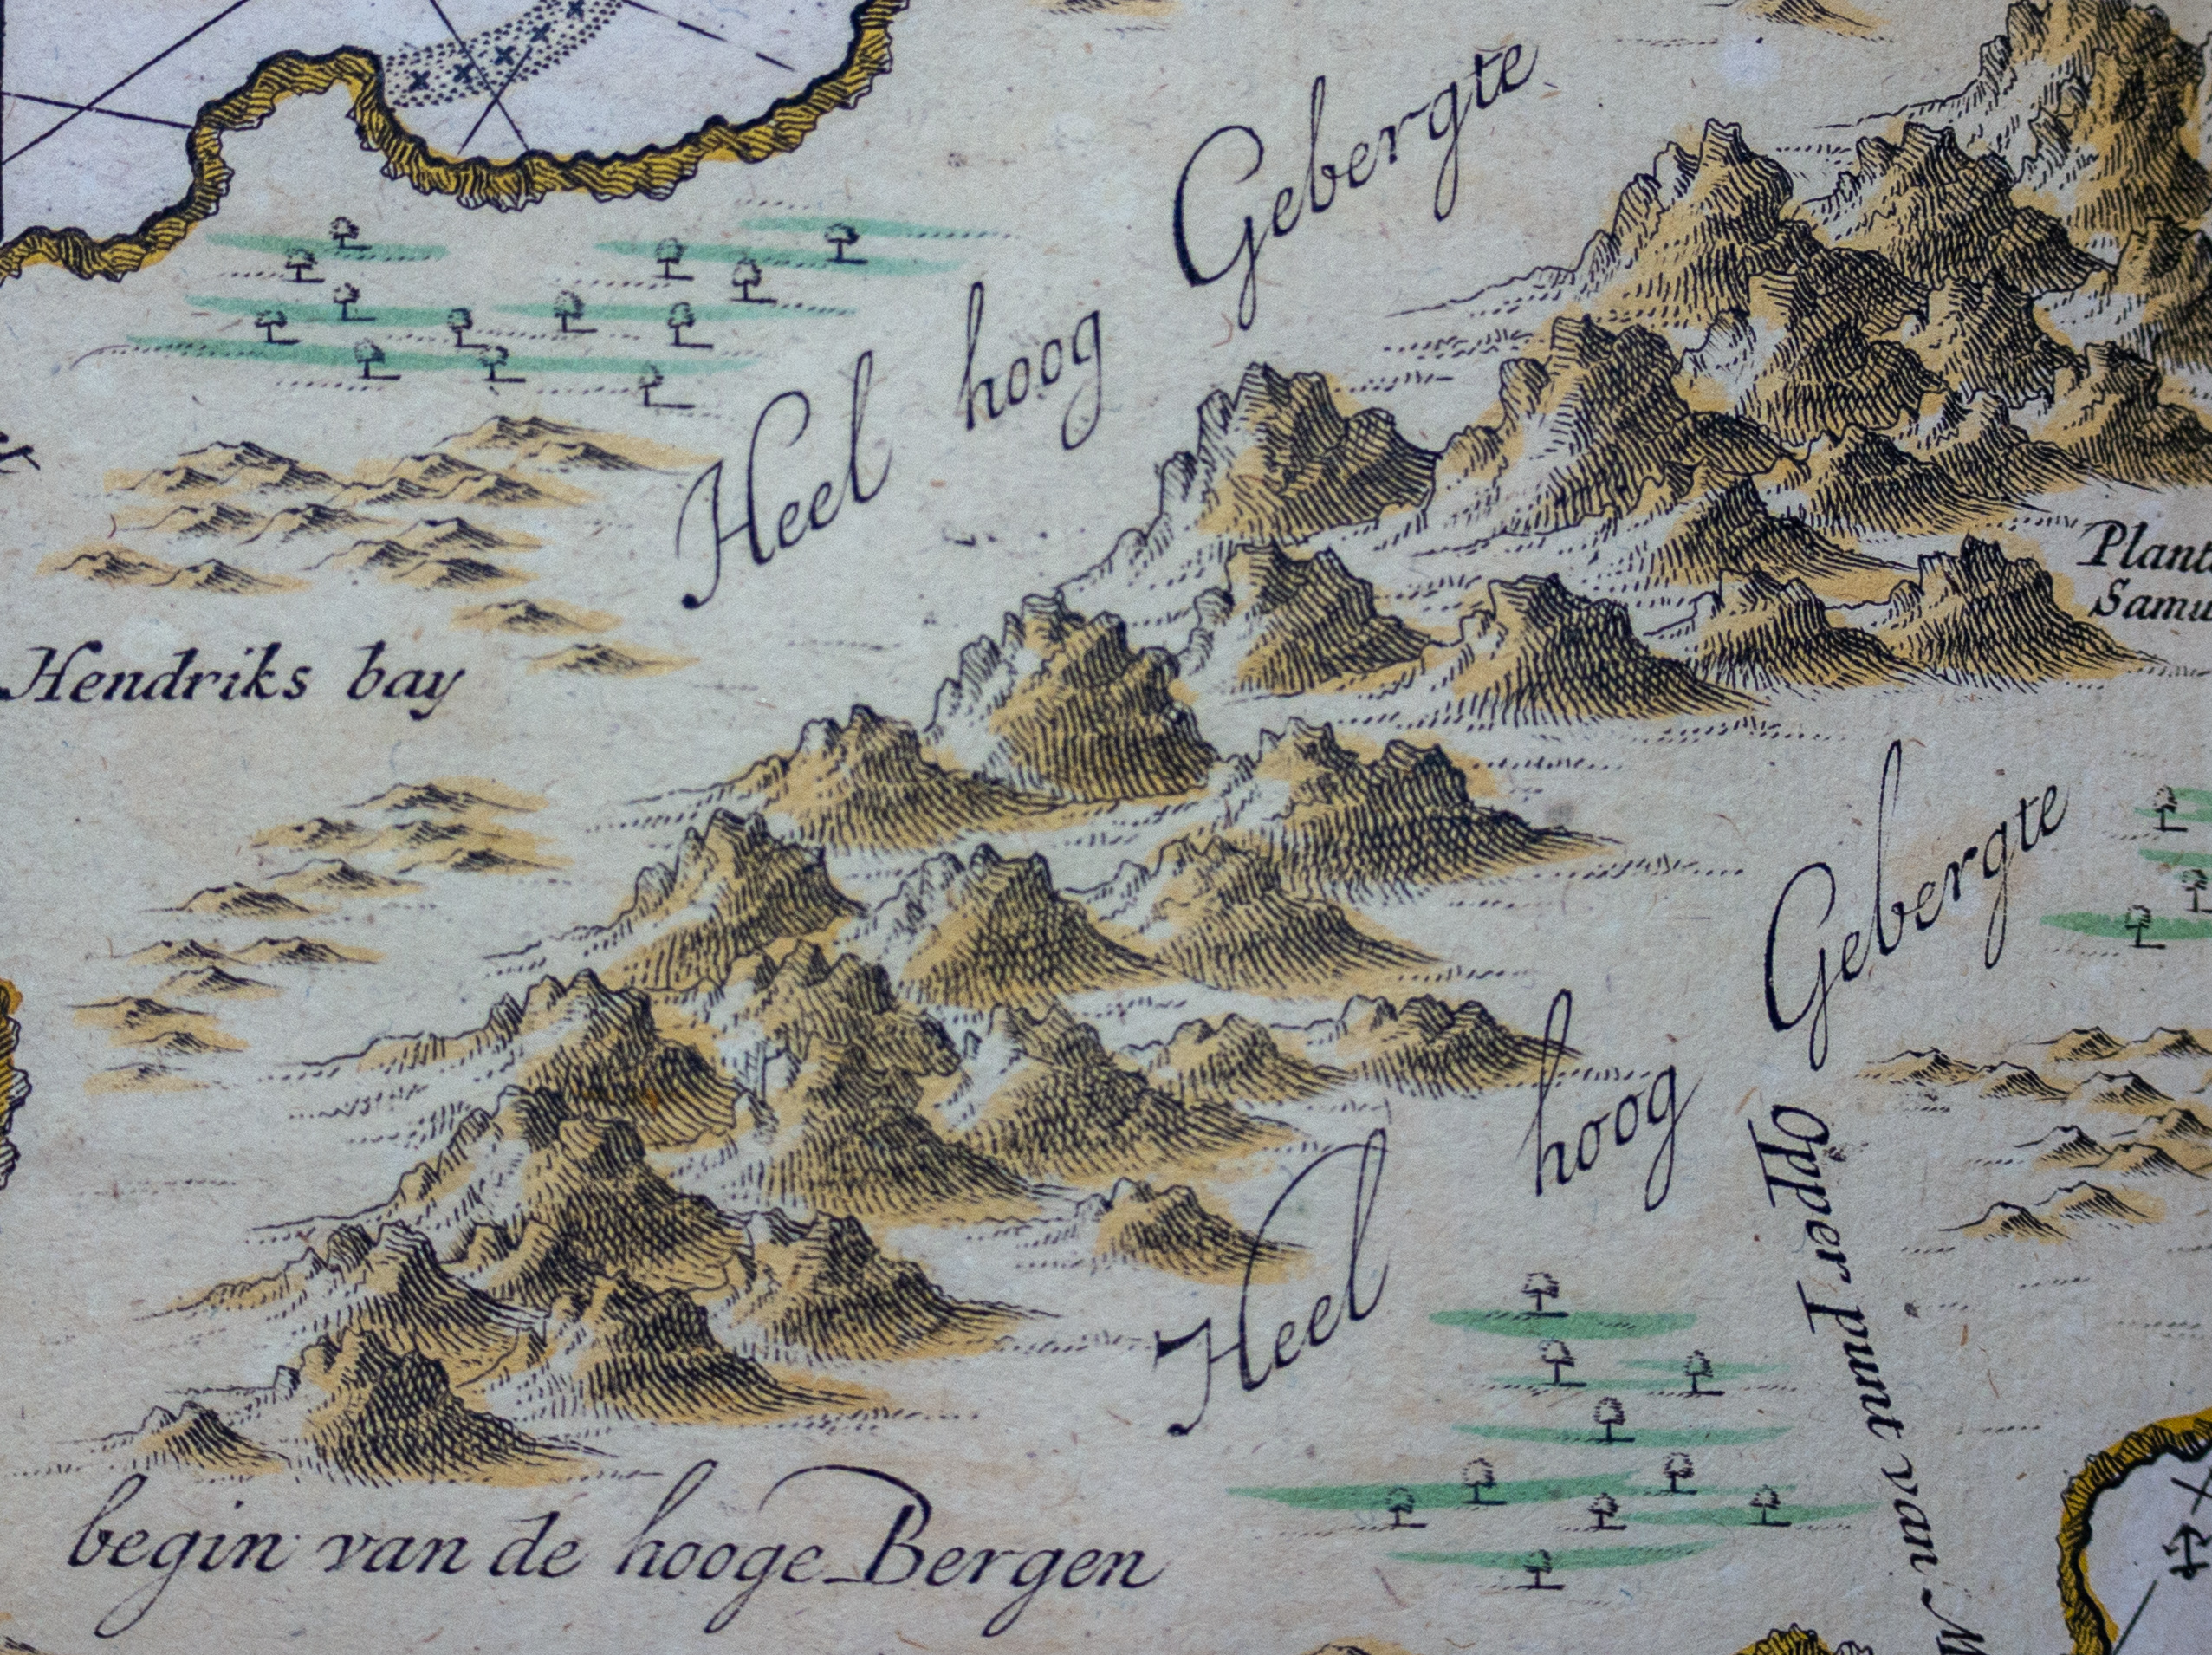 Heel hoog Gebergte
Plant
Samu
Hendriks bay
Heel hoog Gebergte
opper punt van M
begin van de hooge Bergen